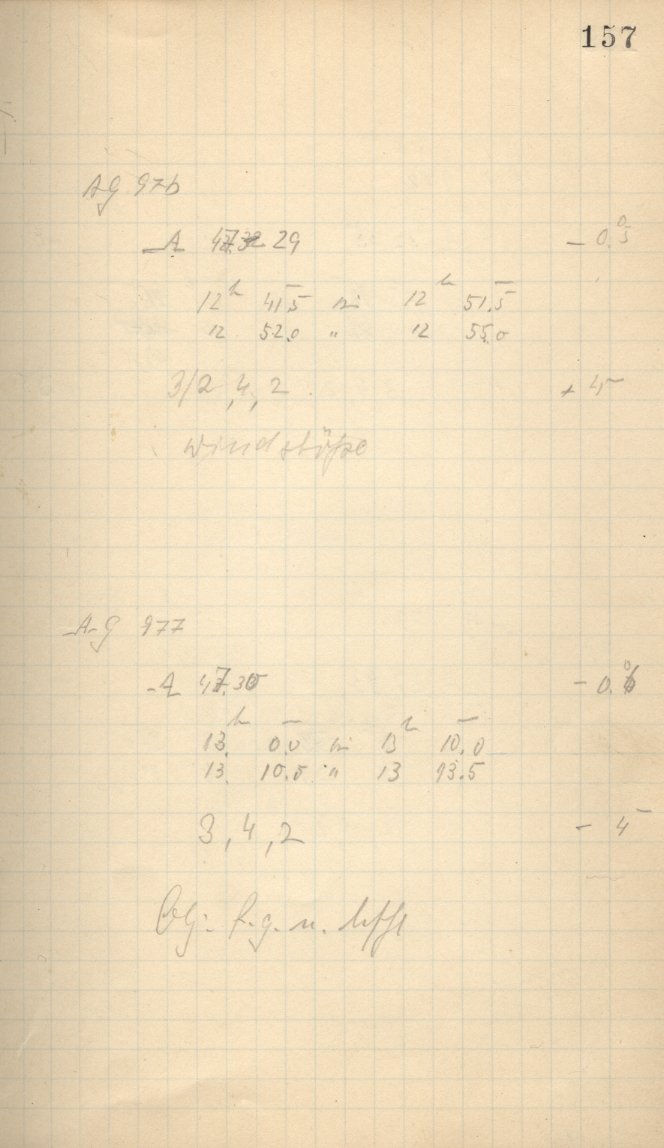 157
AG 976
A 47. 29 - 0.5
12h 41.5 bis 12h 51.5
12 52.0 " 12 55.0
3/2, 4, 2 + 4m
Windstöße
A.G 977
A 47.30 - 0.
13h 0.0 bis 13h 10.0
13 10.5 " 13 13.5
3, 4, 2 - 4m
Obj. f. g. u.